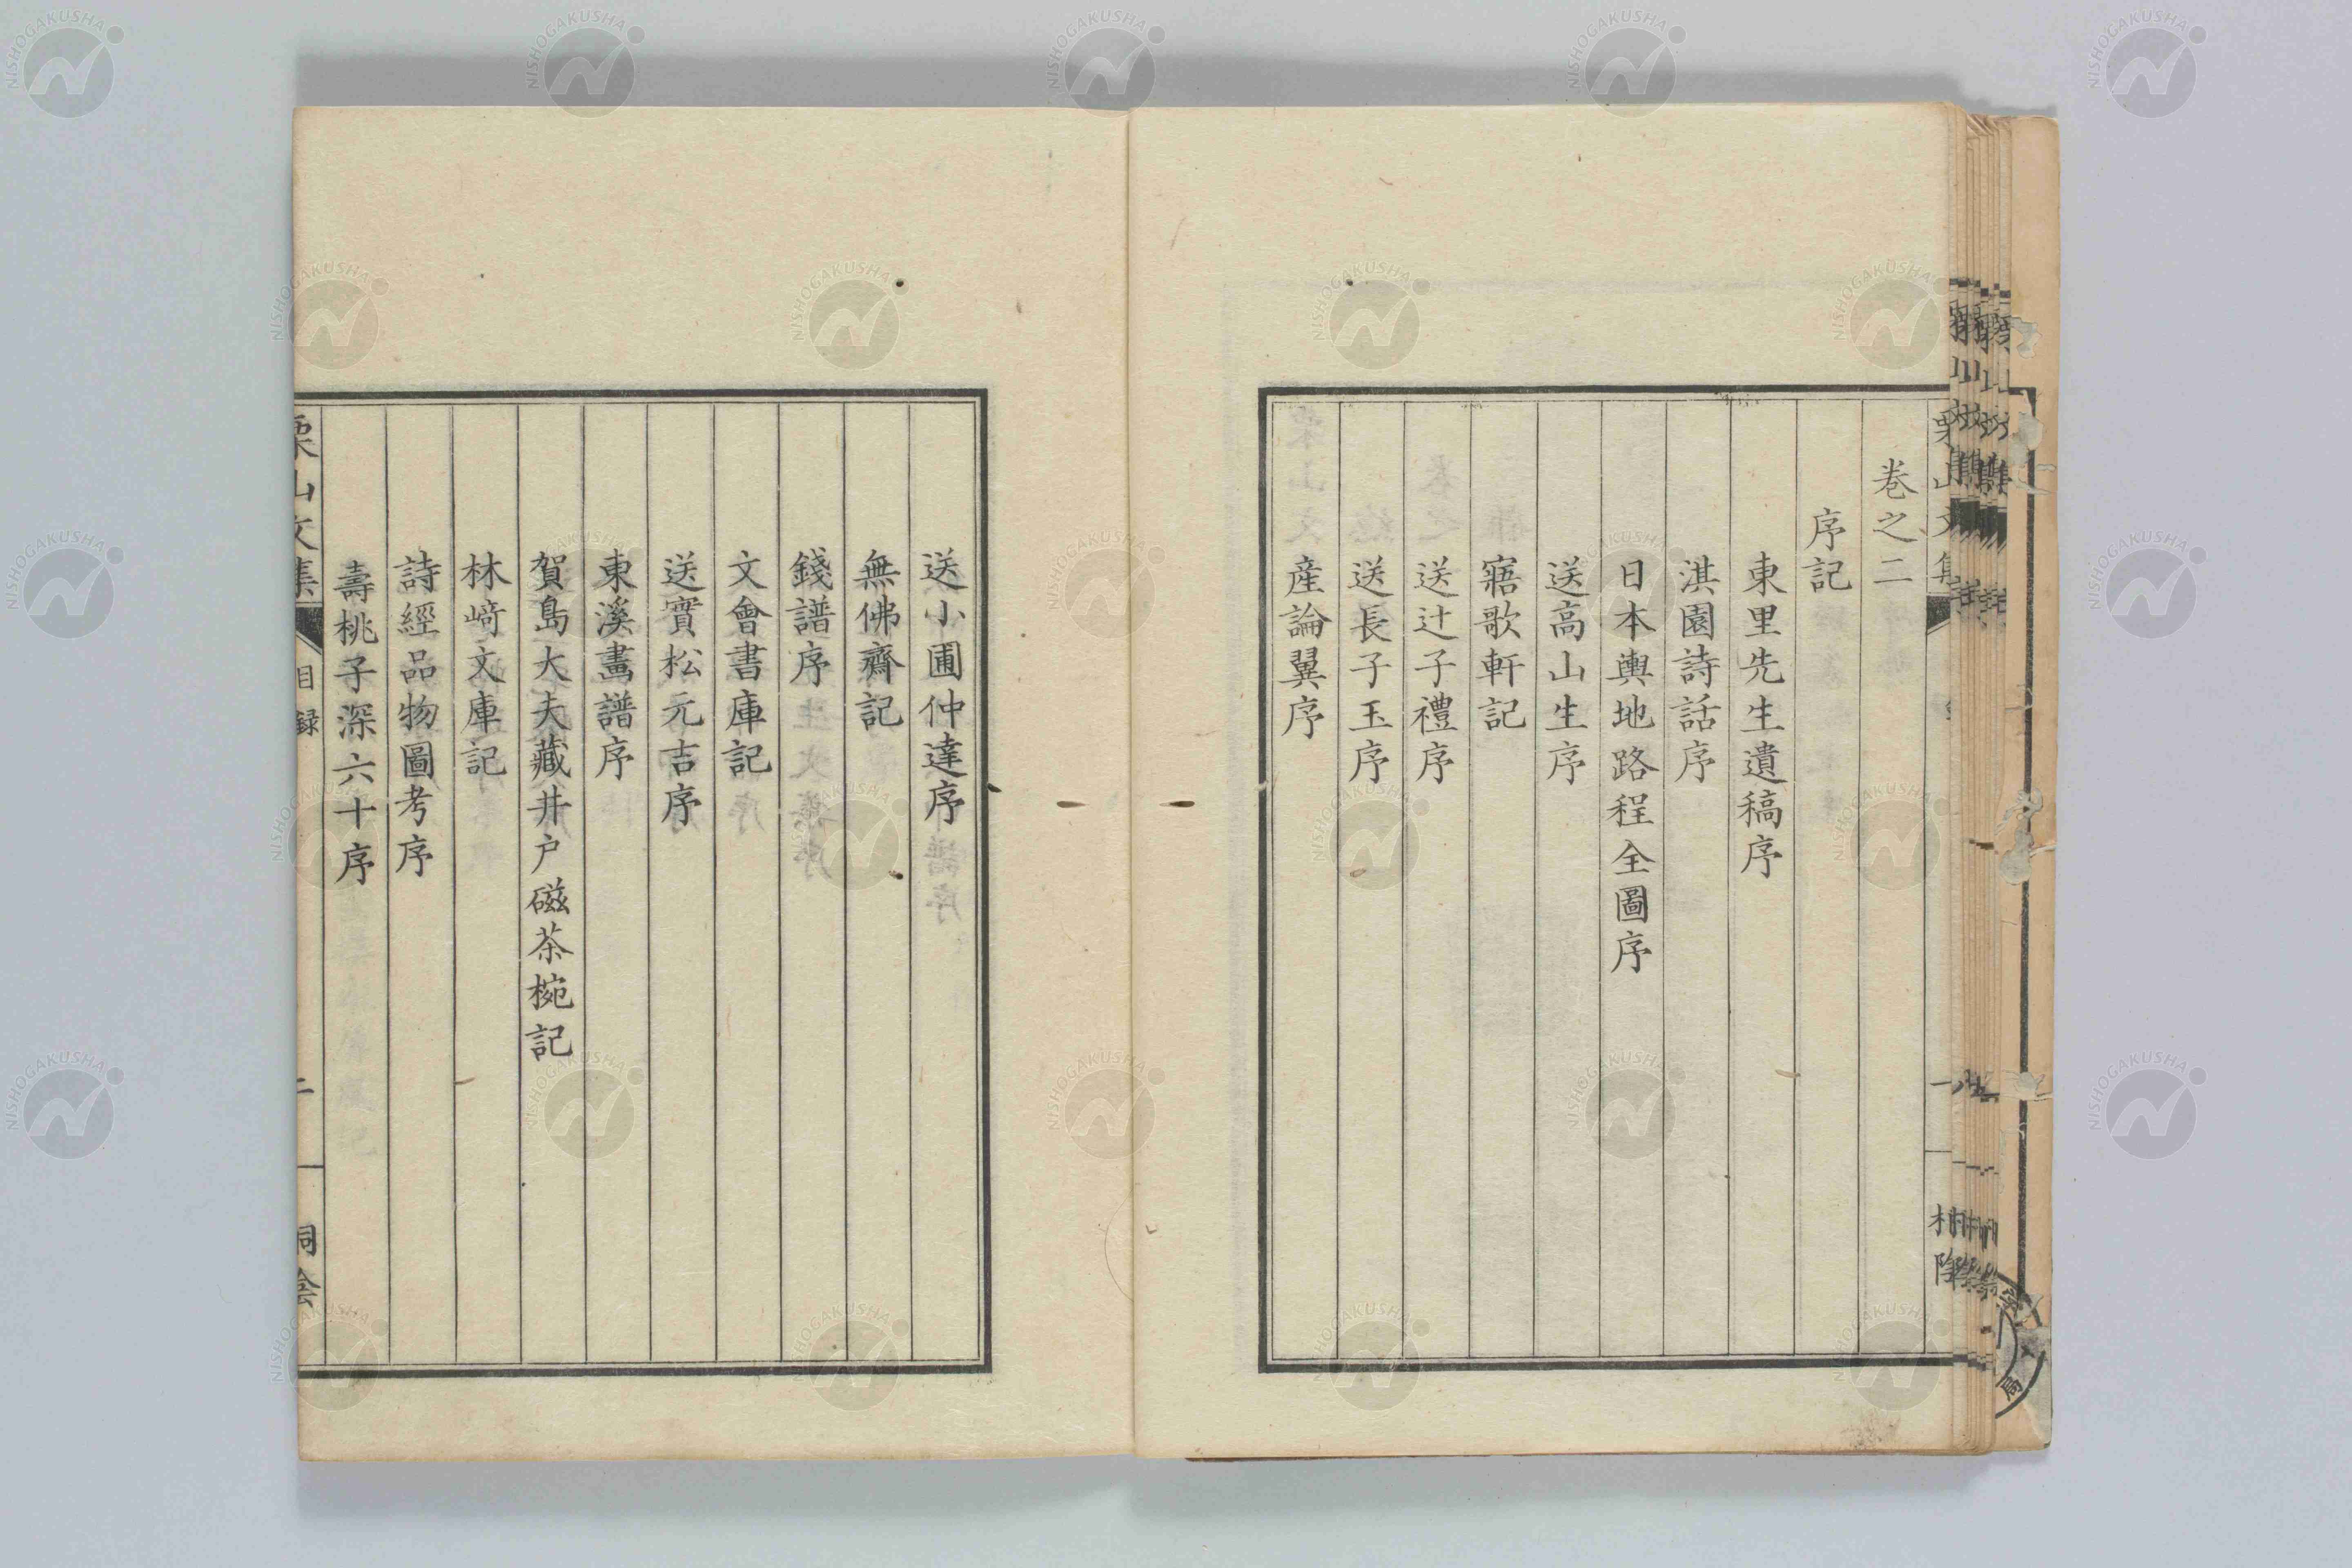 卷之二
序記
東里先生遺稿序
淇園詩話序
日本輿地路程全圖序
送高山生序
寤歌軒記
送辻子禮序
送長子玉序
産論翼序
送小圃仲達序
無佛齋記
錢譜序
文會書庫記
送實松元吉序
東溪畵譜序
賀島大夫藏井戸磁茶椀記
林﨑文庫記
詩經品物圖考序
壽桃子深六十序
栗山文集
目録
二
桐陰
NISHOGAKUSHA